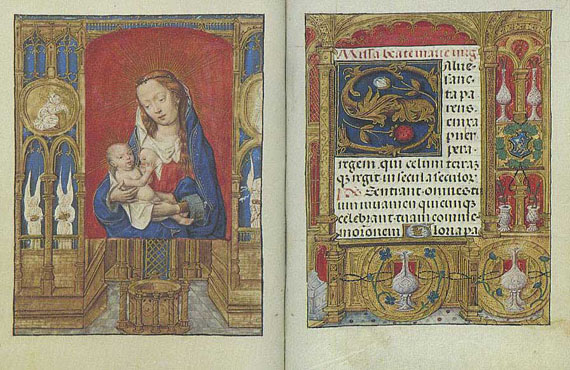 Missa beate marie virg
Salue
sanc-
ta pa
rens.
enixa
puer
pera
regem. qui celum terraz
qz regit in secula seculor
ps Sentiant omnes tu
um iuuamen quicunque
celebrant tuam comme
morationem Gloria pa